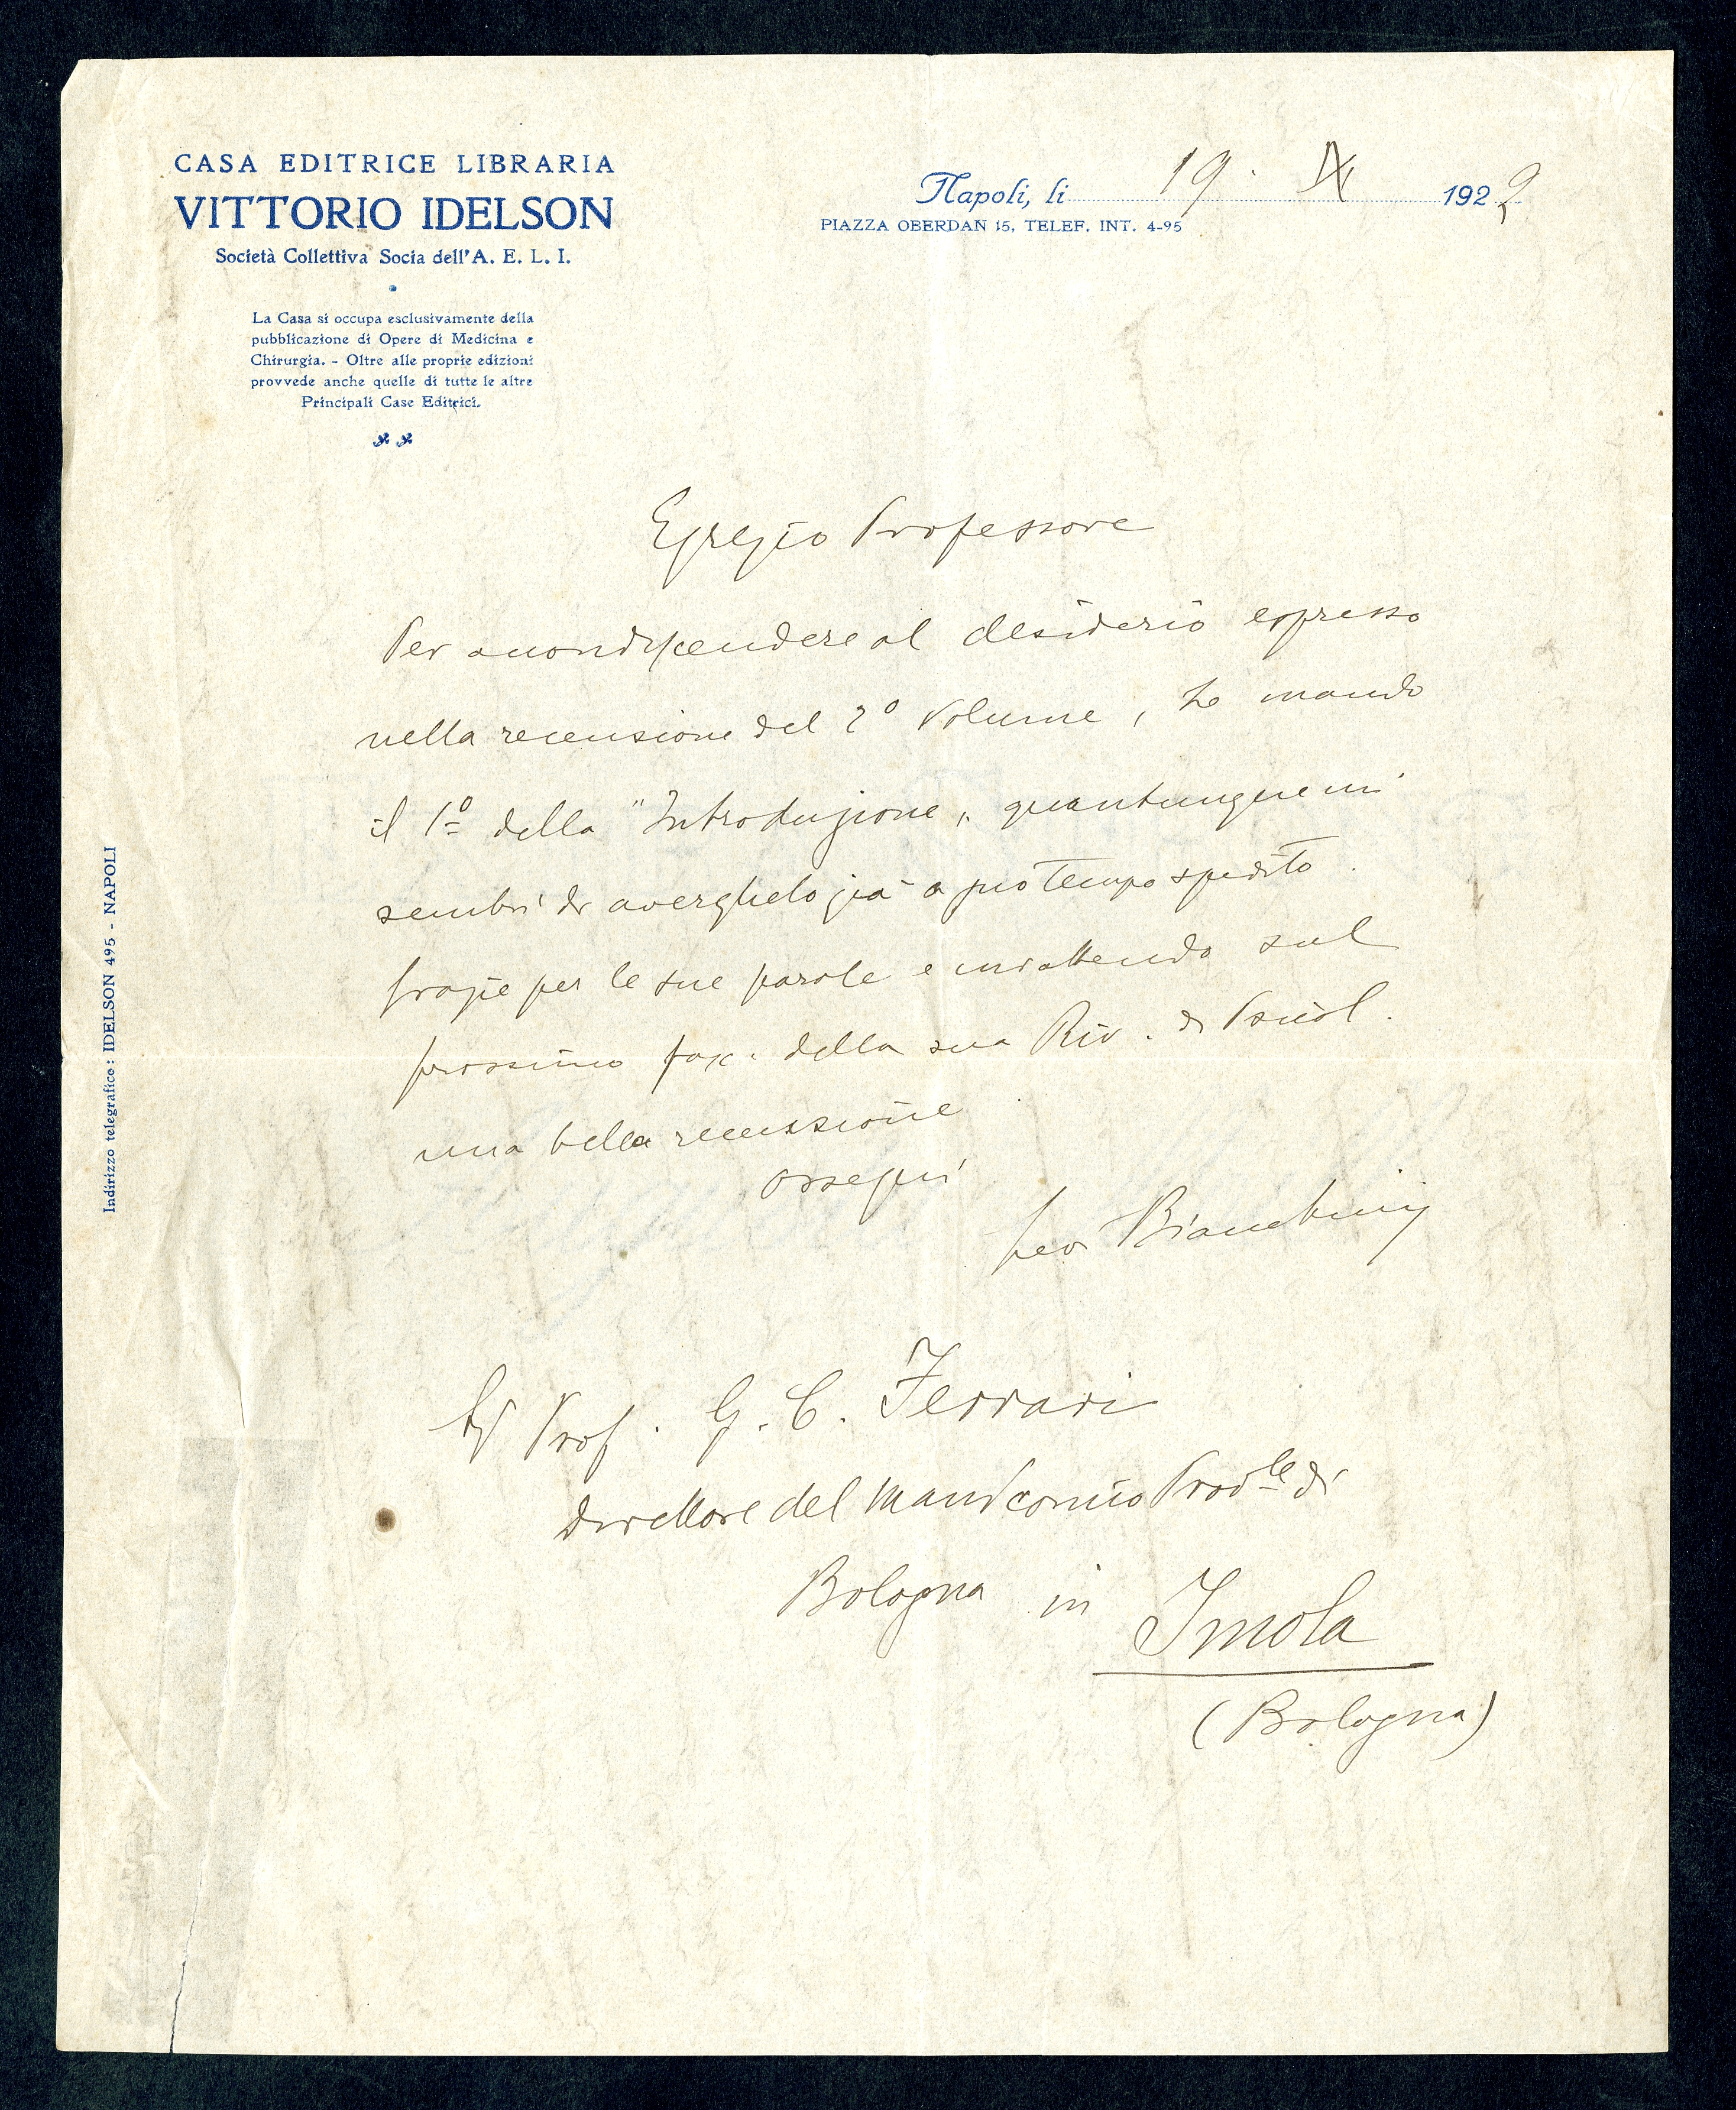 CASA EDITRICE LIBRARIA
VITTORIO IDELSON
Società Collettiva Socia dell'A. E. L. I.
La Casa si occupa esclusivamente della
pubblicazione di Opere di Medicina e
Chirurgia. - Oltre alle proprie edizioni
provvede anche quelle di tutte le altre
Principali Case Editrici.
Napoli, li 19. IX 1922
PIAZZA OBERDAN 15, TELEF. INT. 4-95
Indirizzo telegrafico: IDELSON 495 - NAPOLI
Egregio Professore
Per accondiscendere al desiderio espresso
nella recensione del 2º volume, Le mando
il 1º della "Introduzione„ quantunque mi
sembri di averglielo già a suo tempo spedito.
Grazie per le sue parole e mi attendo sul
prossimo fasc. della sua Riv. di Psicol.
una bella recensione
Ossequi
Bianchini
Prof. G. C. Ferrari
Direttore del Manicomio Prov.le di
Bologna in Imola
(Bologna)